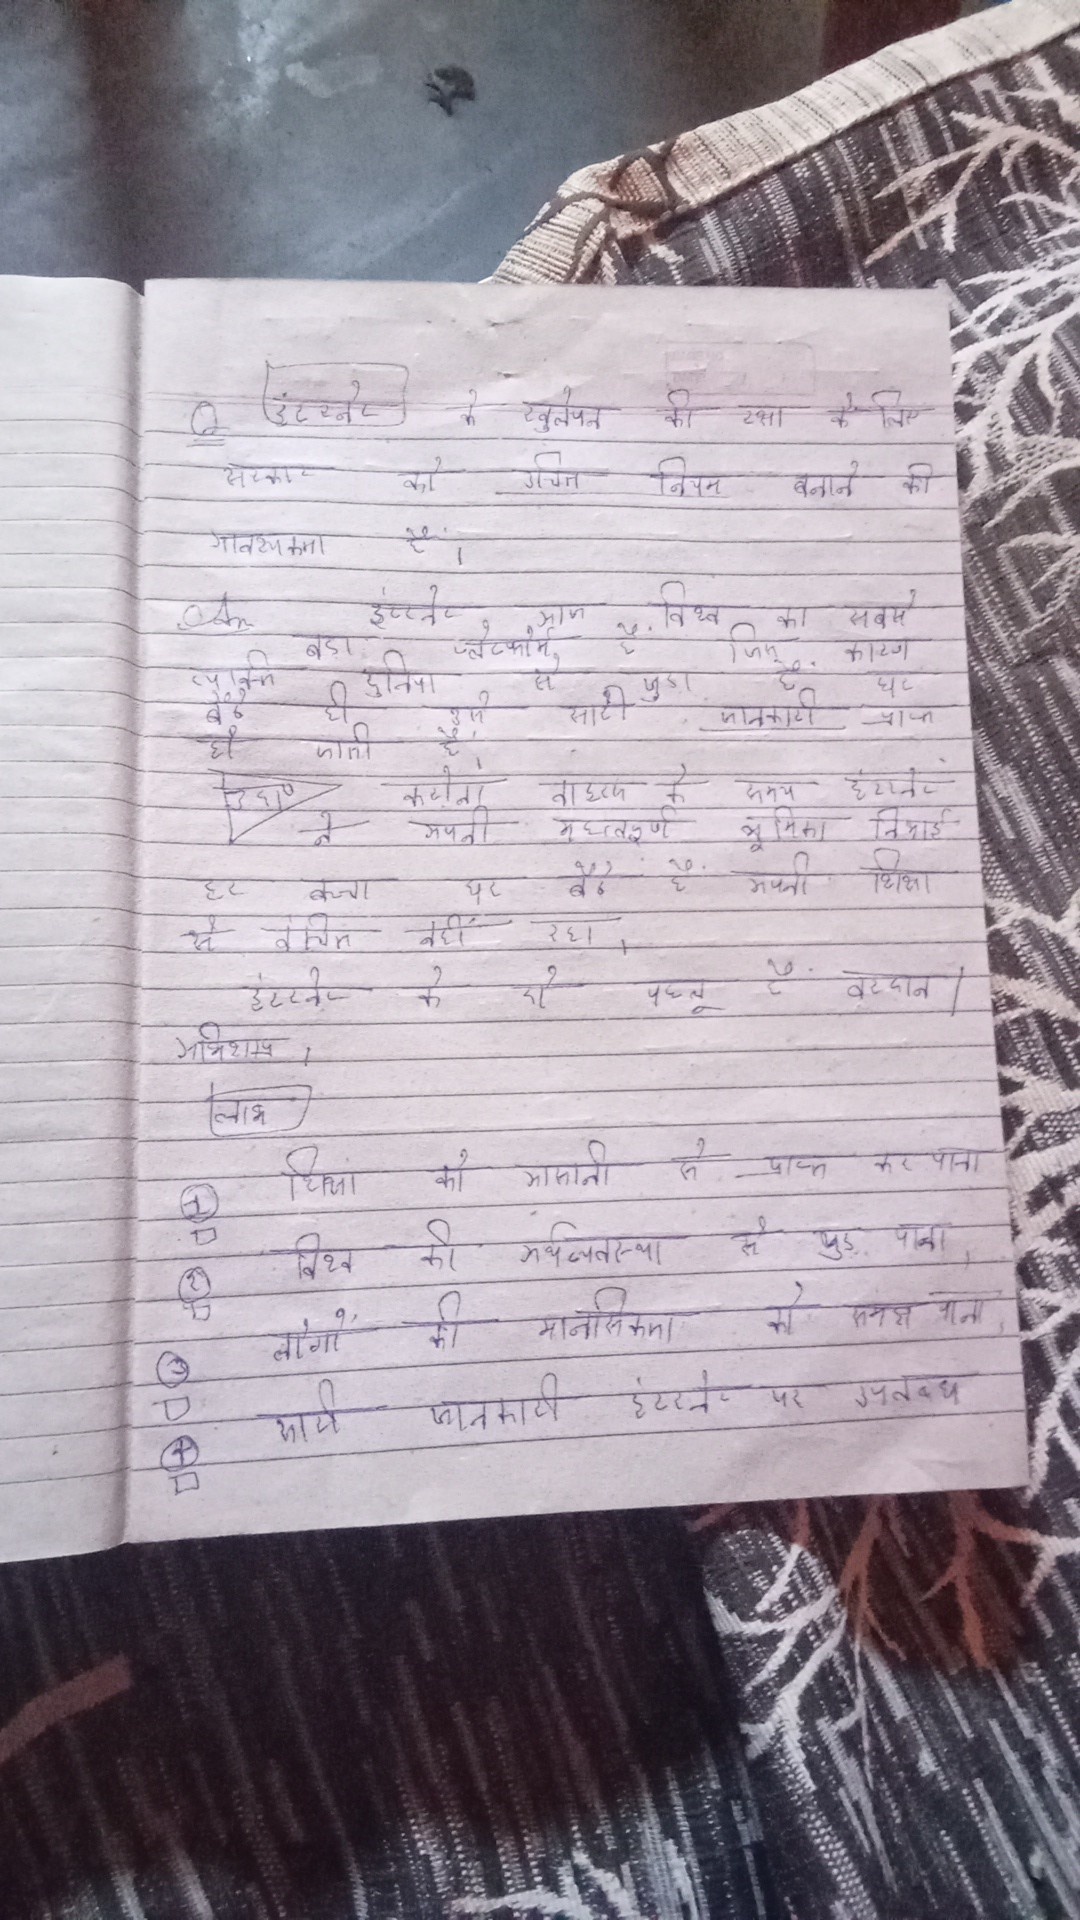 Q इंटरनेट के खुलेपन की रक्षा के लिए
सरकार को उचित नियम बनाने की
आवश्यकता है।
Ans इंटरनेट आज विश्व का सबसे
बड़ा प्लेटफोर्म है जिस कारण
व्यक्ति दुनिया से जुडा है घर
बैठे ही उसे सारी जानकारी प्राप्त
हो जाती है।
उदा० करोना वाइरस के समय इंटरनेट
ने अपनी महत्वपूर्ण भूमिका निभाई
हर बच्चा घर बैठे है अपनी शिक्षा
से वंचित नहीं रहा।
इंटरनेट के दो पहलू है वरदान/
अभिशाप।
लाभ
1 शिक्षा को आसानी से प्राप्त कर पाना
2 विश्व की अर्थव्यवस्था से जुड़ पाना।
3 लोगों की मानसिकता को समझ पाना।
4 सारी जानकारी इंटरनेट पर उपलब्ध